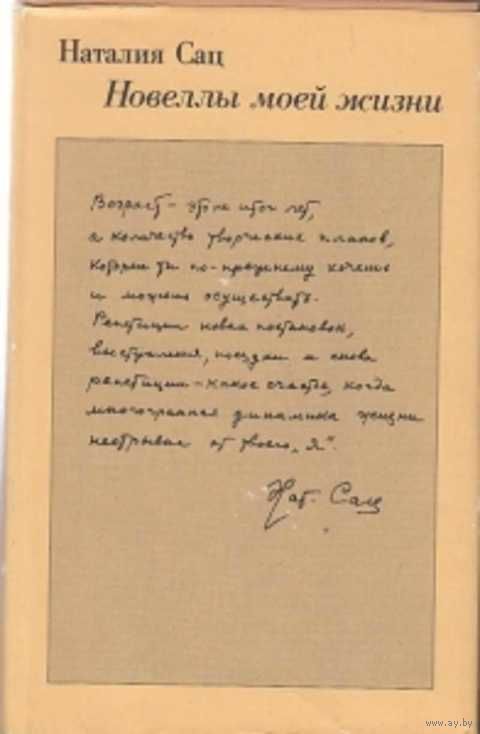 Наталия Сац
Новеллы моей жизни
Возраст – это не итог лет,
а количество творческих планов,
которые ты по-прежнему хочешь
и можешь осуществить.
Репетиции новых постановок,
выступления, поездки и снова
репетиции – какое счастье, когда
многогранная динамика жизни
неотрывна от твоего „я“.
Нат. Сац
www.ay.by